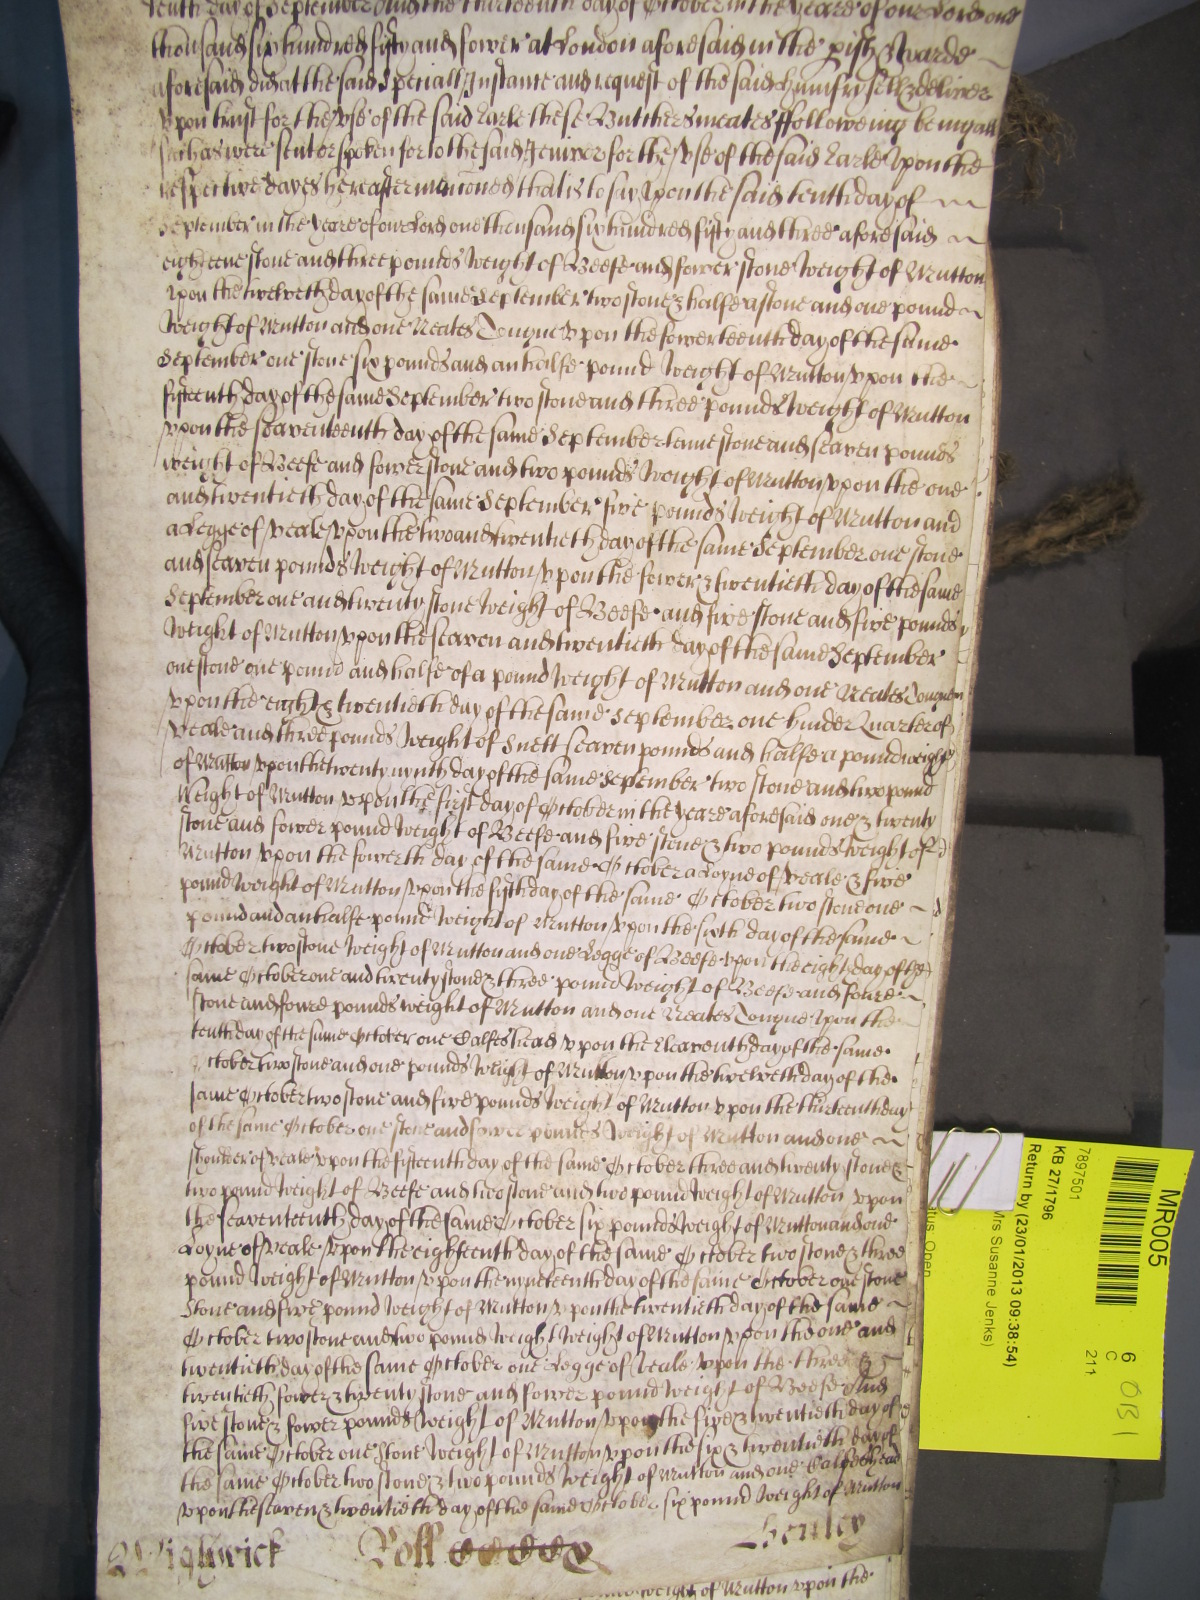 tenth day of September and the thirteenth day of October in the yeare of our Lord one
thousand six hundred fifty and fower at London aforesaid in the pish & Warde
aforesaid did at the said speciall Instance and request of the said Humfry sell & deliver
vpon trust for the vse of the said Earle these Butchers meates ffolloweing being all
such as were sent or spoken for to the said for the vse of the said Earle vpon the
respective dayes hereafter mencioned that is to say vpon the said tenth day of
September in the yeare of our Lord one thousand six hundred fifty and three aforesaid
eighteene stone and three pounds weight of Beefe and fower stone weight of Mutton
vpon the twelveth day of the same September two stone & halfe a stone and one pound
weight of Mutton and one Neates Tongue vpon the fowerteenth day of the same
September one stone six pounds and an halfe pound weight of Mutton vpon the
fifteenth day of the same September two stone and three pounds weight of Mutton
vpon the seaventeenth day of the same September tenne stone and seaven pounds
weight of Beefe and fower stone and two pounds weight of Mutton vpon the one
and twentieth day of the same September five pounds weight of Mutton and
a Legge of veale vpon the two and twentieth day of the same September one stone
and seaven pounds weight of Mutton vpon the fower & twentieth day of the same
September one and twenty stone weight of Beefe and five stone and five pounds
weight of Mutton vpon the seaven and twentieth day of the same September
one stone one pound and halfe of a pound weight of Mutton and one Neates Tongue
vpon the eight & twentieth day of the same September one hinder Quarter of
veale and three pounds weight of Suett seaven pounds and halfe a pound weight
of Mutton vpon the twenty nynth day of the same September two stone and two pound
weight of Mutton vpon the first day of October in the yeare aforesaid one & twenty
stone and fower pound weight of Beefe and five stone & two pounds weight of
Mutton vpon the fowerth day of the same October a Loyne of veale & five
pound weight of Mutton vpon the fifth day of the same October two stone one
pound and an halfe pound weight of Mutton vpon the sixth day of the same
October two stone weight of Mutton and one Legge of Beefe vpon the eight day of the
same October one and twenty stone & three pound weight of Beefe and foure
stone and foure pounds weight of Mutton and one Neates Tongue vpon the
tenth day of the same October one Calfes head vpon the Eleaventh day of the same
October two stone and one pounds weight of Mutton vpon the twelveth day of the
same October two stone and five pounds weight of Mutton vpon the thirteenth day
of the same October one stone and fower pounds weight of Mutton and one
shoulder of veale vpon the fifteenth day of the same October three and twenty stone &
two pound weight of Beefe and two stone and two pound weight of Mutton vpon
the seaventeenth day of the same October six pounds weight of Mutton and one
Loyne of veale vpon the eighteenth day of the same October two stone & three
pound weight of Mutton vpon the nyneteenth day of the same October one stone
stone and five pound weight of Mutton vpon the twentieth day of the same
October two stone and two pound weight weight of Mutton vpon the one and
twentieth day of the same October one Legge of veale vpon the three &
twentieth fower & twenty stone and fower pound weight of Beefe and
five stone & fower pounds weight of Mutton vpon the five & twentieth day of
the same October one stone weight of Mutton vpon the six & twentieth day of
the same October two stone & two pounds weight of Mutton and one Calfes head
vpon the seaven & twentieth day of the same October six pound weight of Mutton
Wightwick Roll Henley
weight of Mutton vpon the
MR005
6
C
211
7897501
KB 27/1796
Return by (23/01/2013 09:38:54)
Mrs Susanne Jenks)
atus Open